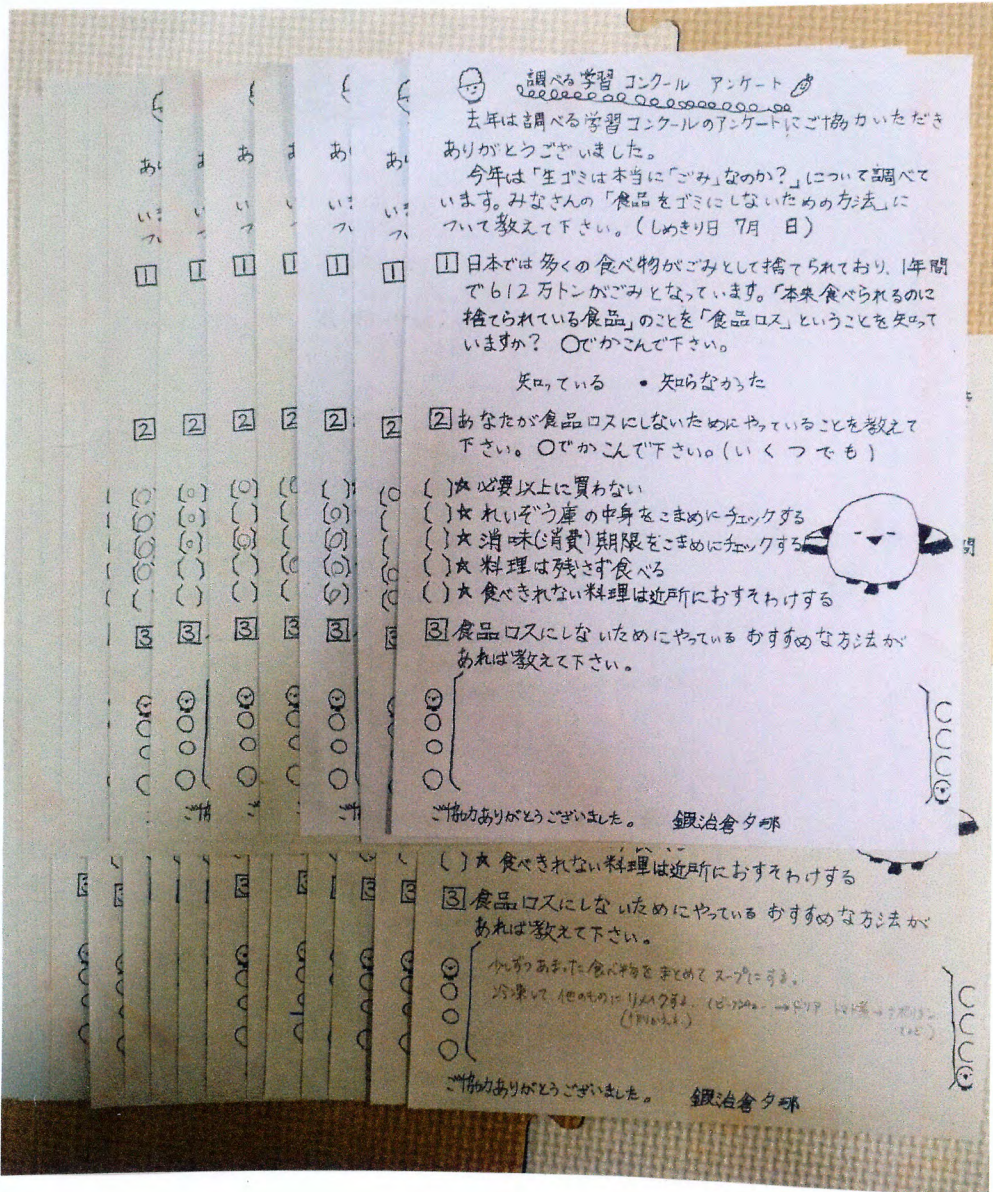 調べる学習 コンクール アンケート
去年は調べる学習コンクールのアンケートにご協力いただき
ありがとうございました。
今年は「生ゴミは本当に「ごみ」なのか?」について調べて
います。みなさんの「食品をゴミにしないための方法」に
ついて教えて下さい。(しめきり日 7月 日)
1 日本では多くの食べ物がごみとして捨てられており、1年間
で612万トンがごみとなっています。「本来食べられるのに
捨てられている食品」のことを「食品ロス」ということを知って
いますか? ○でかこんで下さい。
知っている ・ 知らなかった
2 あなたが食品ロスにしないためにやっていることを教えて
下さい。○でかこんで下さい。(いくつでも)
( )★必要以上に買わない
( )★れいぞう庫の中身をこまめにチェックする
( )★消味(消費)期限をこまめにチェックする
( )★料理は残さず食べる
( )★食べきれない料理は近所におすそわけする
3 食品ロスにしないためにやっているおすすめな方法が
あれば教えて下さい。
ご協力ありがとうございました。 鍜治倉夕那
( )★食べきれない料理は近所におすそわけする
3 食品ロスにしないためにやっているおすすめな方法が
あれば教えて下さい。
少しずつあまった食べ物をまとめてスープにする。
冷凍して、他のものにリメイクする。
ご協力ありがとうございました。 鍜治倉夕那